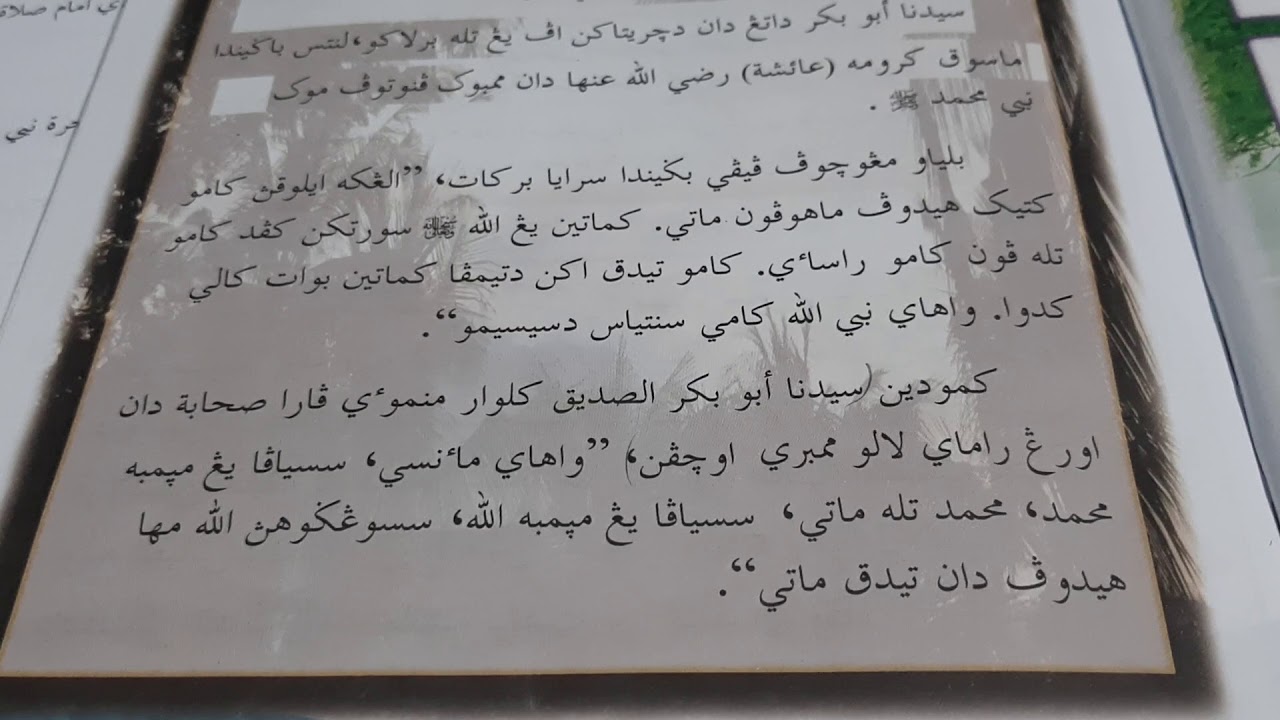 سيدنا أبو بكر داتڠ دان دچريتاکن اڤ يڠ تله برلاکو، لنتس باݢيندا
ماسوق کرومه (عائشة) رضي الله عنها دان ممبوک ڤنوتوڤ موک
نبي محمد ﷺ .
بلياو مڠوچوڤ ڤيڤي بݢيندا سرايا برکات، ”الڠکه ايلوقڽ کامو
کتيک هيدوڤ ماهوڤون ماتي. کماتين يڠ الله ﷻ سورتکن کڤد کامو
تله ڤون کامو راساءي. کامو تيدق اکن دتيمڤا کماتين بوات کالي
کدوا. واهاي نبي الله کامي سنتياس دسيسيمو“.
کمودين سيدنا أبو بکر الصديق کلوار منموءي ڤارا صحابة دان
اورڠ راماي لالو ممبري اوچڤن، ”واهاي ماءنسي، سسياڤا يڠ مڽمبه
محمد، محمد تله ماتي، سسياڤا يڠ مڽمبه الله، سسوڠݢوهڽ الله مها
هيدوڤ دان تيدق ماتي“.
امام صلاة
حرة نبي